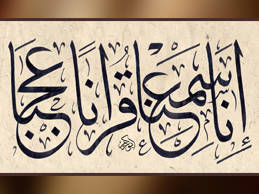 إنا سمعنا قرآنا عجبا